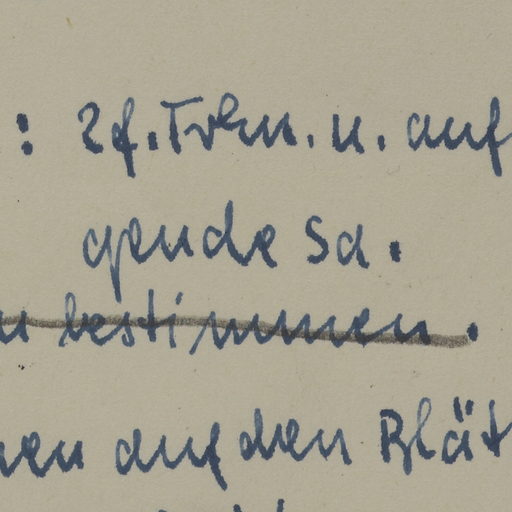 : 2f. Trku. u. auf
gende Sd.
u bestimmen.
nen auf den Blät